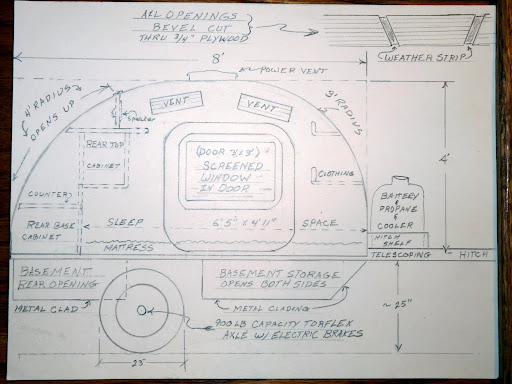 ALL OPENINGS
BEVEL CUT
THRU 3/4" PLYWOOD
WEATHER STRIP
8'
POWER VENT
4' RADIUS
OPENS UP
VENT
VENT
3' RADIUS
speaker
REAR TOP
CABINET
(DOOR 3'x3')
SCREENED
WINDOW
IN DOOR
CLOTHING
4'
COUNTER
REAR BASE
CABINET
SLEEP
6'5" x 4'11"
SPACE
MATTRESS
BATTERY
&
PROPANE
&
COOLER
HITCH
SHELF
TELESCOPING
HITCH
BASEMENT
REAR OPENING
BASEMENT STORAGE
OPENS BOTH SIDES
METAL CLAD
METAL CLADING
~25"
900 LB CAPACITY TORFLEX
AXLE W/ELECTRIC BRAKES
23"